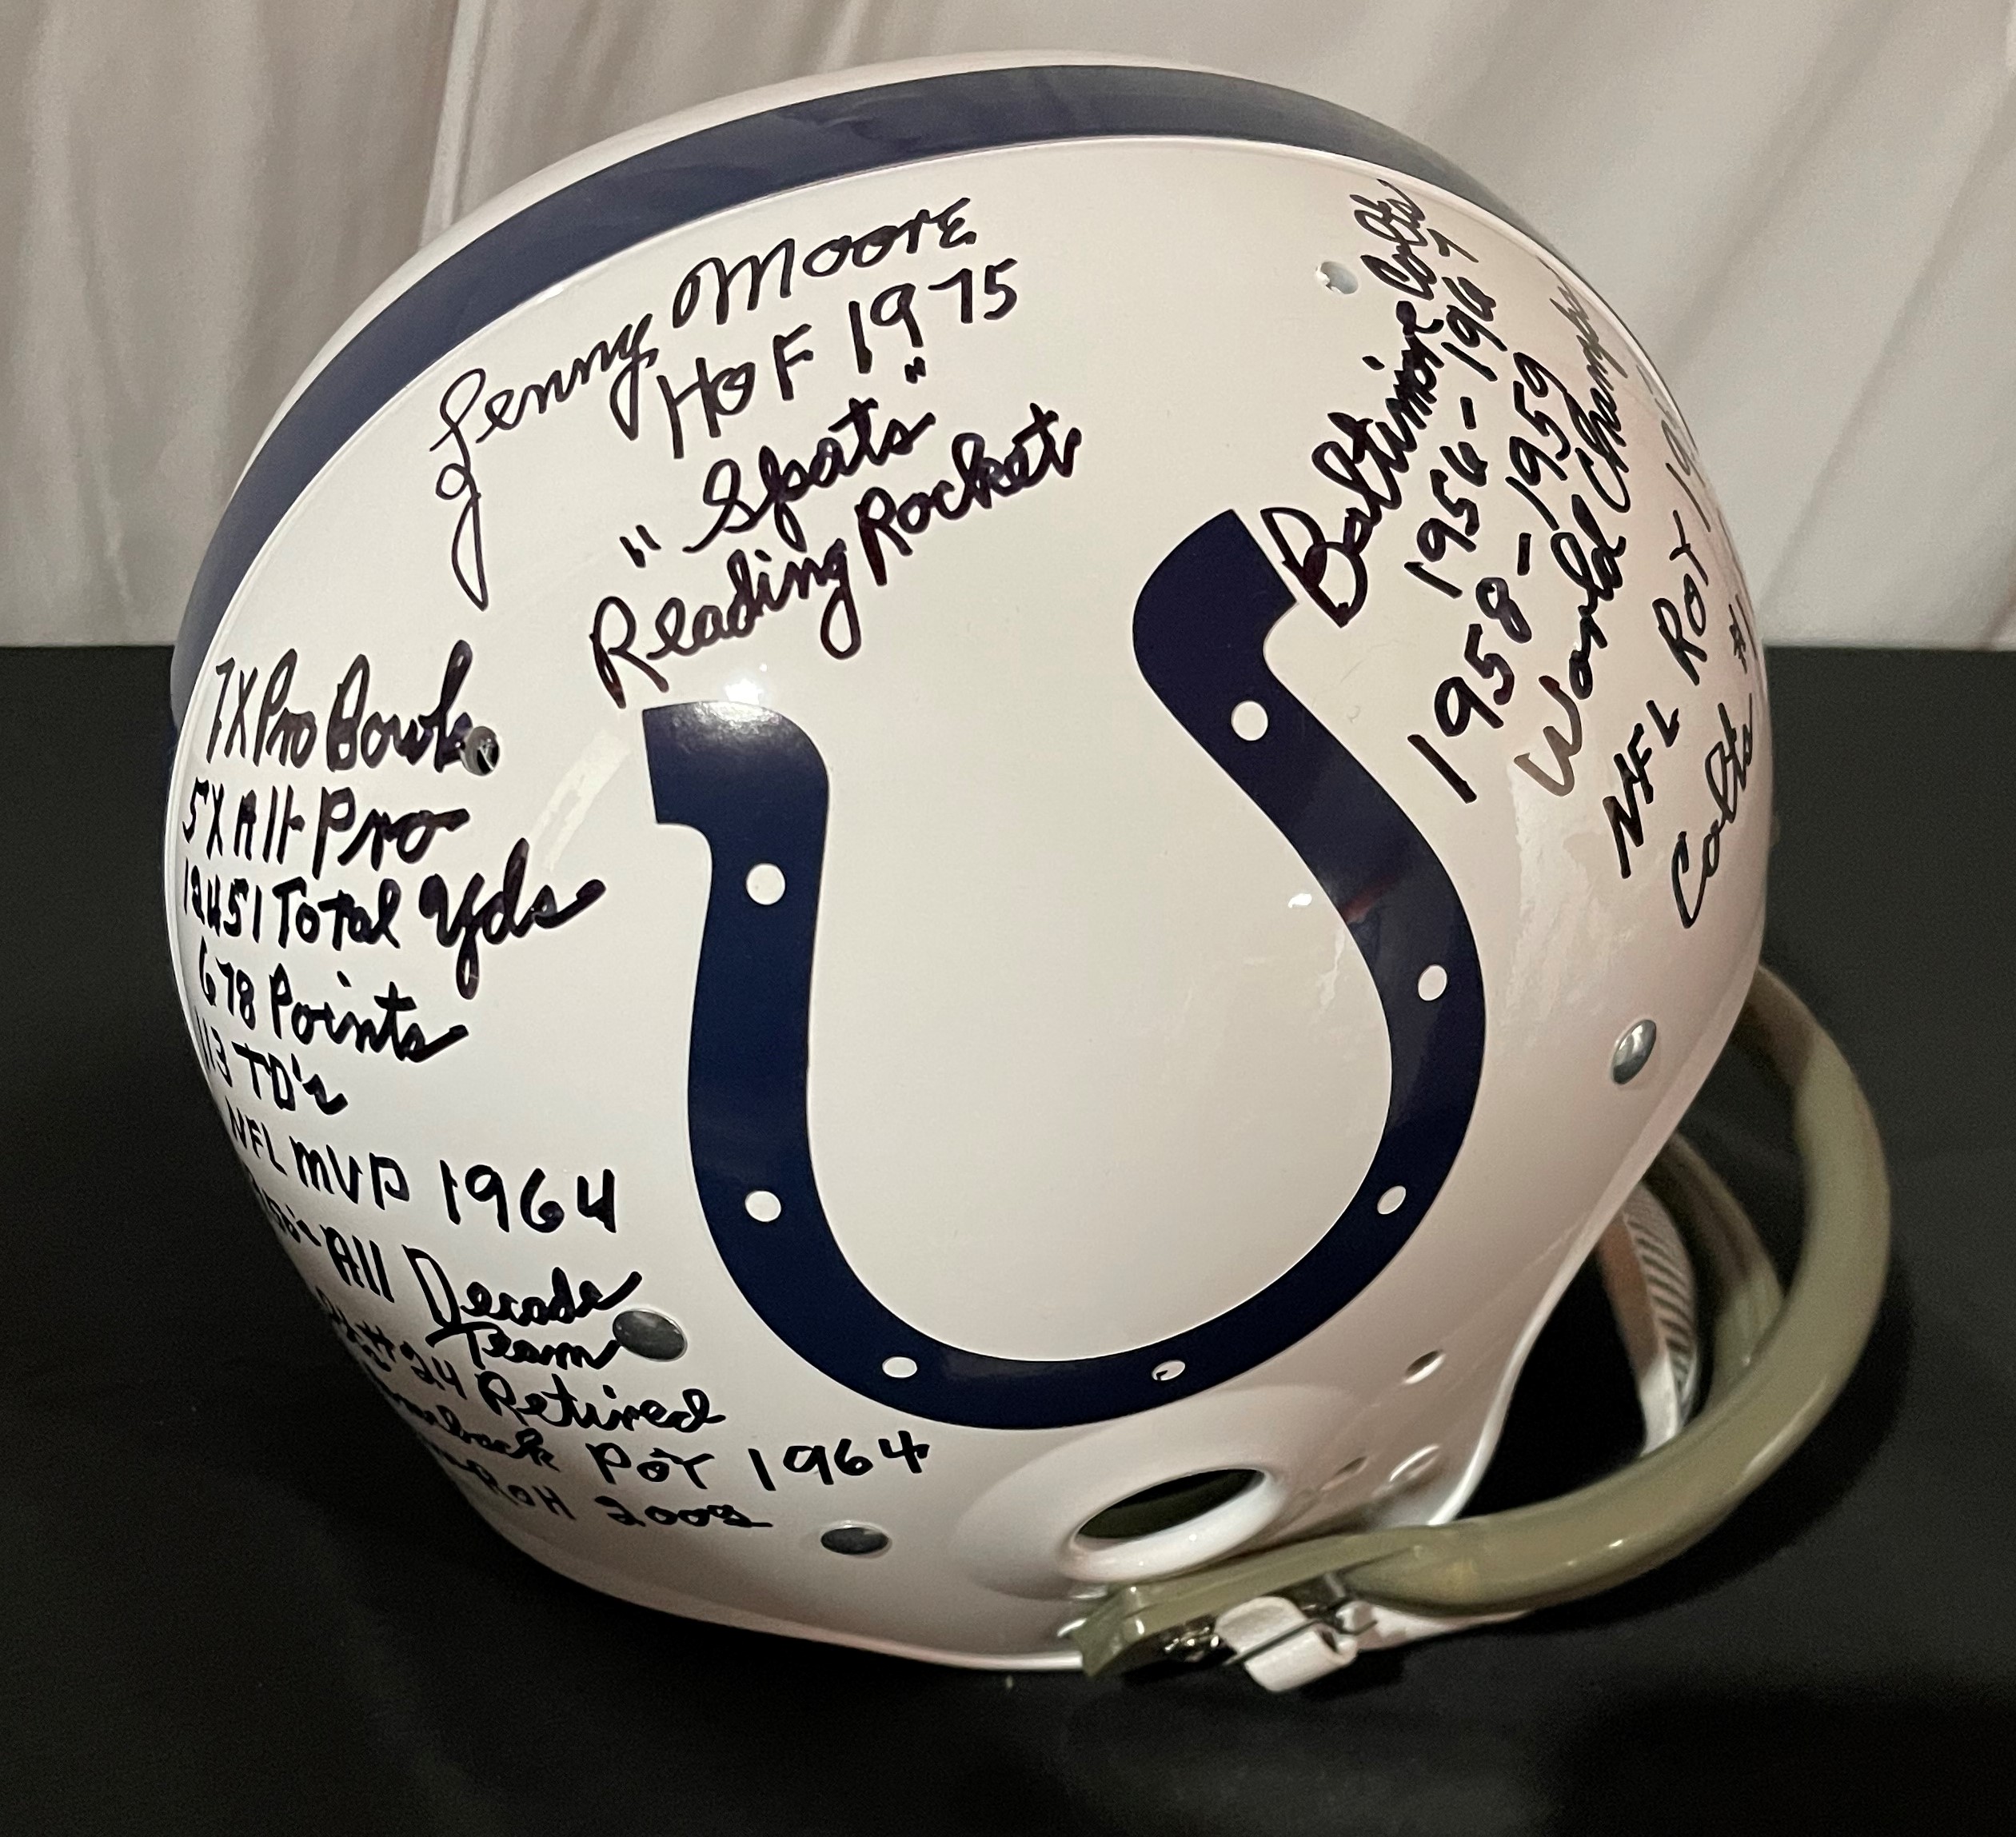 Lenny Moore
HOF 1975
"Spats"
Reading Rocket
7X Pro Bowls
5X All-Pro
12451 Total Yds
678 Points
113 TD's
NFL MVP 1964
All Decade
Team
#24 Retired
POY 1964
ROH
Baltimore Colts
1956-1967
1958-1959
World Champs
NFL ROY
Colts